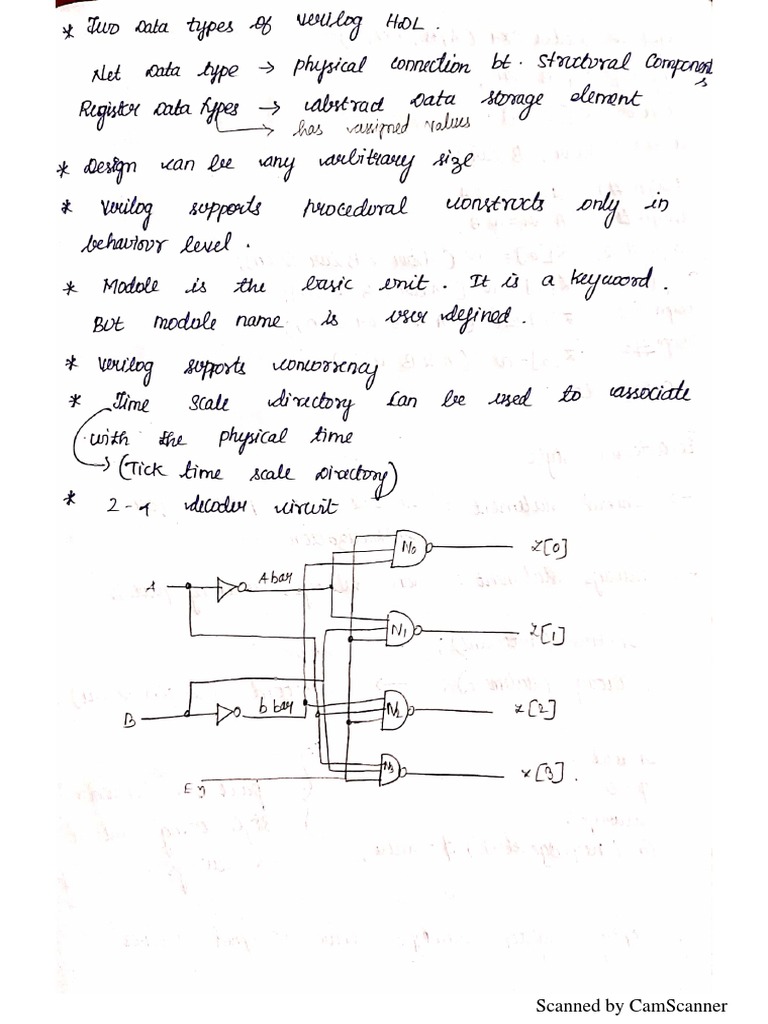 * Two Data types of Verilog HDL.
Net Data type → physical connection bt. Structural Components
Register Data types → abstract Data storage element
→ has assigned values
* Design can be any arbitrary size
* Verilog supports procedural constructs only in
behaviour level.
* Module is the basic unit. It is a keyword.
But module name is user defined.
* Verilog supports concurrency
* Time scale directory can be used to associate
with the physical time
→ (Tick time scale Directory)
* 2-4 decoder circuit
N0 Z[0]
A A bar
N1 Z[1]
B b bar N2 Z[2]
N3 Z[3].
En
Scanned by CamScanner